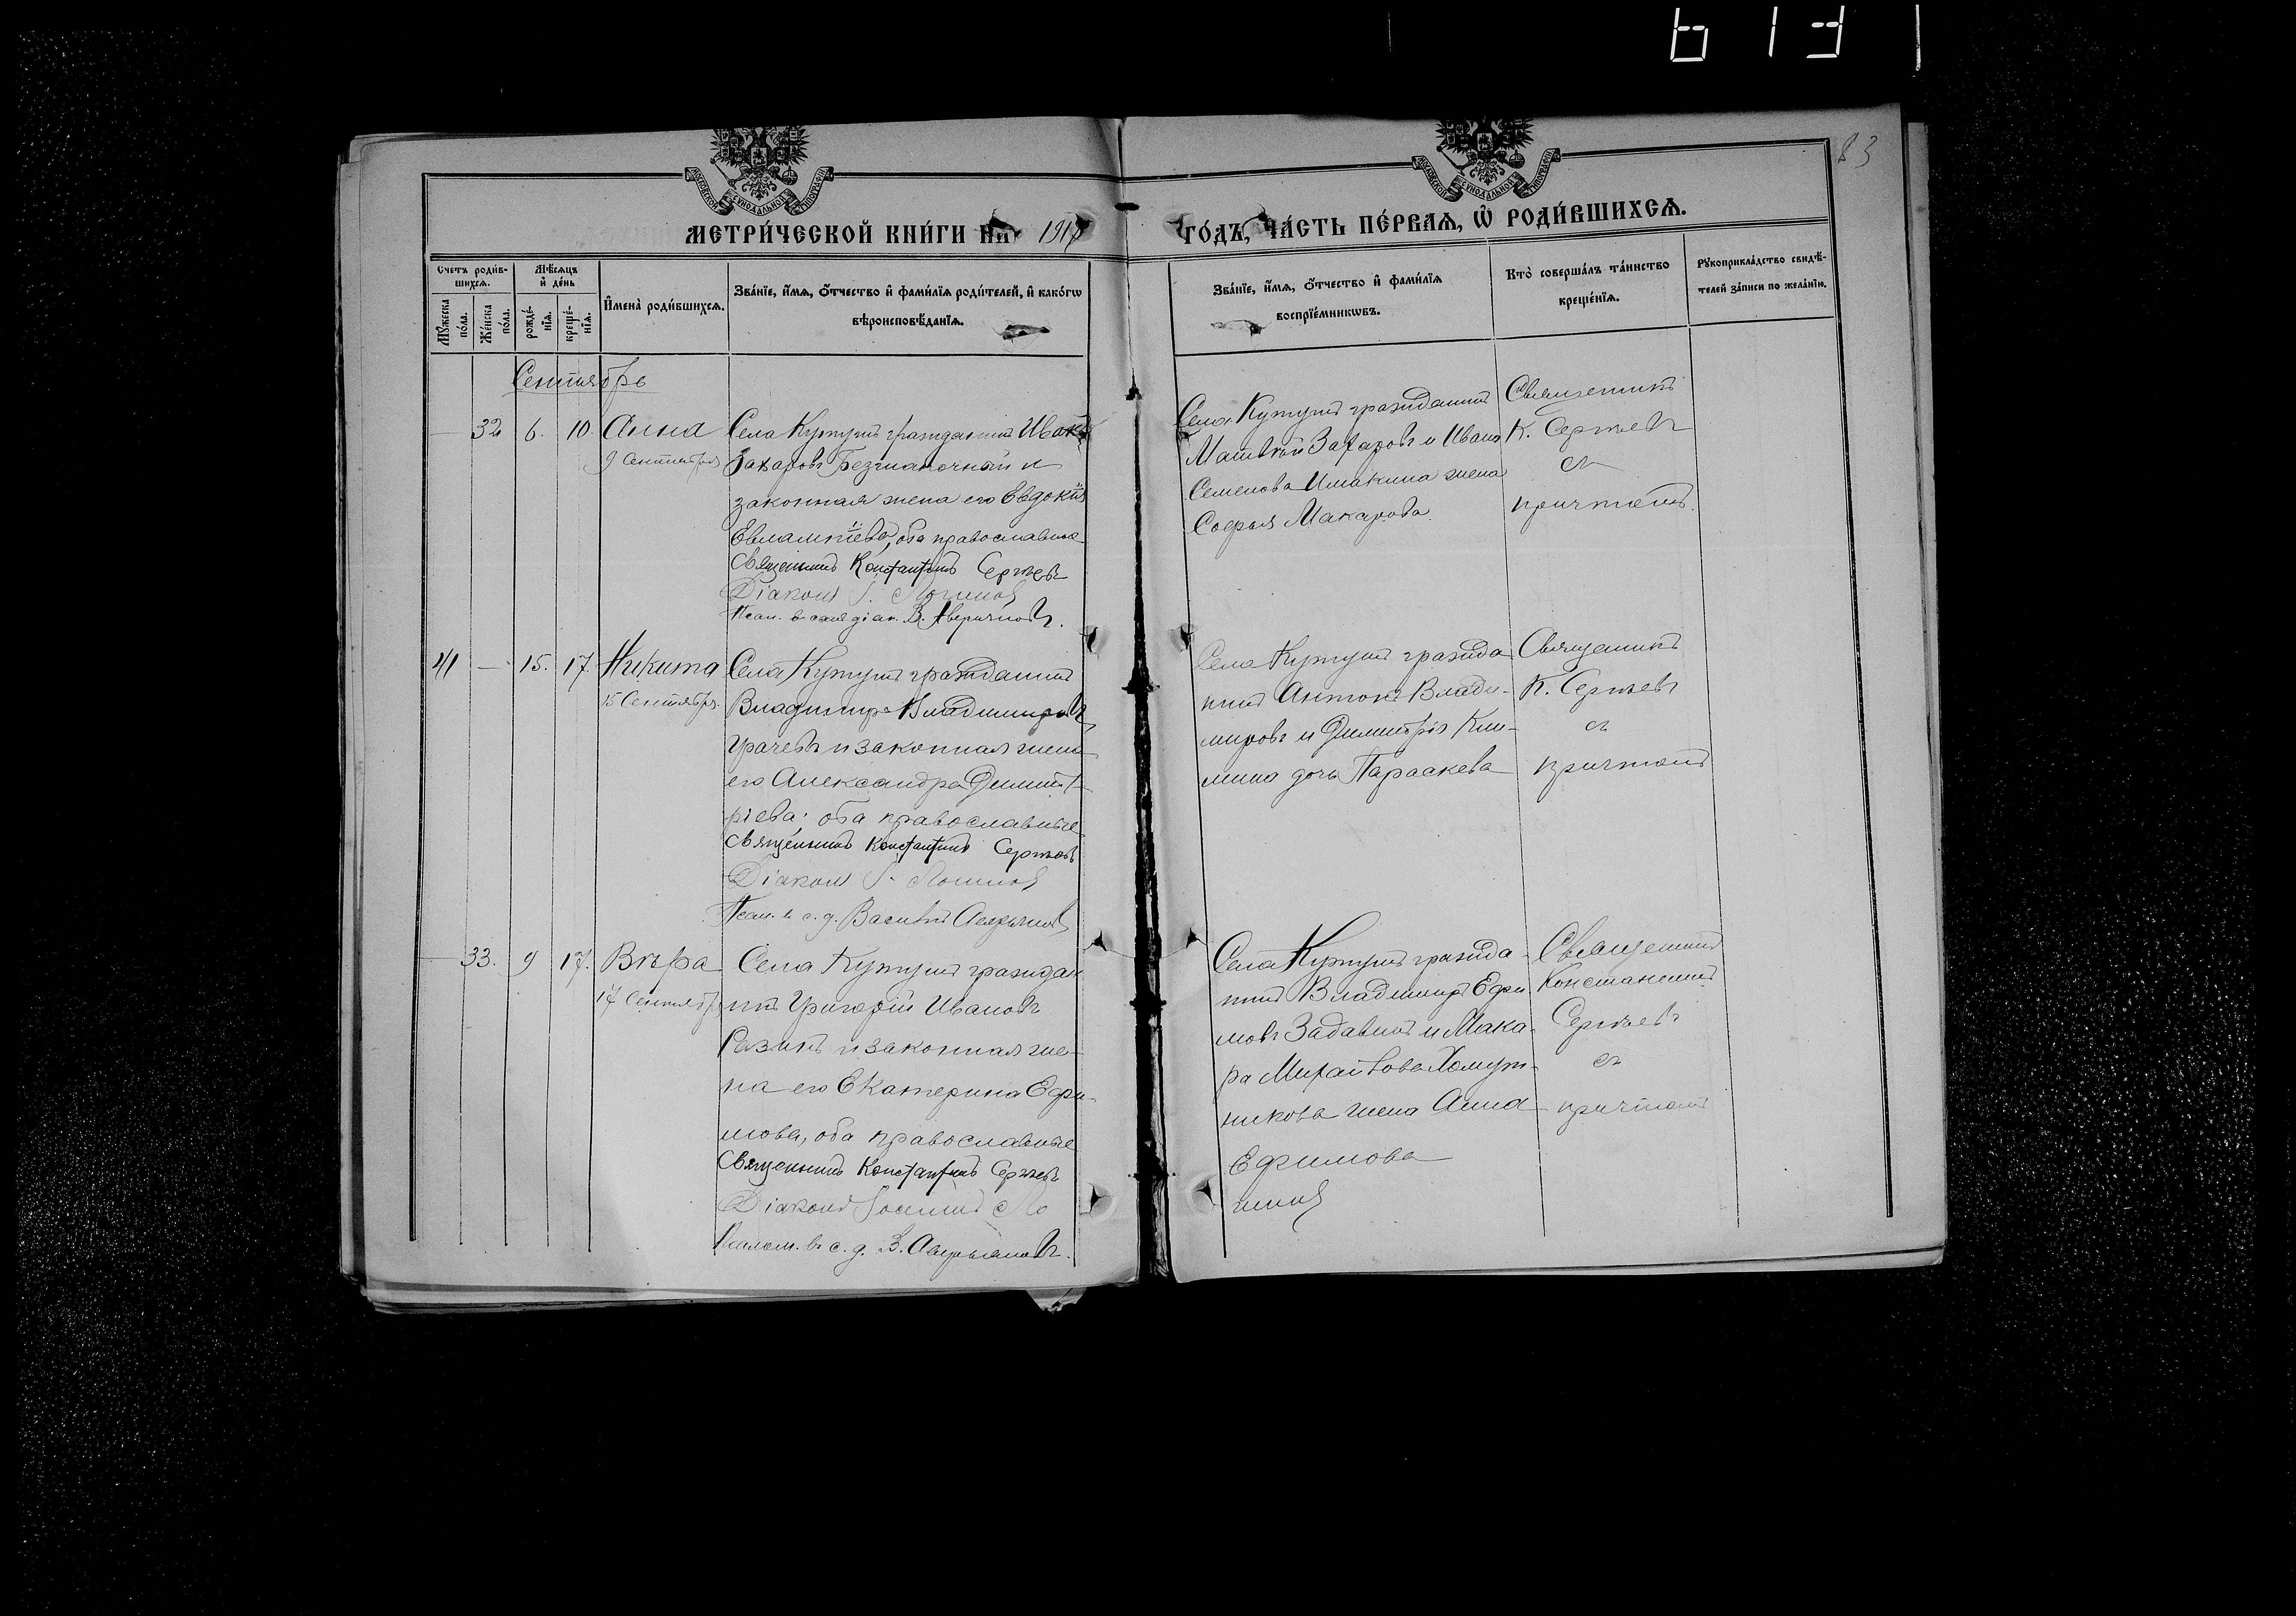 613
83
МЕТРИ́ЧЕСКОЙ КНИ́ГИ НА 1918
ГО́ДЪ, ЧА́СТЬ ПЕ́РВАЯ, Ѡ РОДИ́ВШИХСЯ.
Счетъ роди́в-
шихся.
Мѣ́сяцъ
и҆ де́нь
Мꙋ́жеска
по́ла.
Же́нска
по́ла.
рожде́-
нїя.
креще́-
нїя.
И҆мена̀ роди́вшихся.
Зва́нїе, и҆́мя, ѻ҆́тчество и҆ фами́лїя роди́телей, и҆ како́гѡ
вѣроисповѣ́данїѧ.
Зва́нїе, и҆́мя, ѻ҆́тчество и҆ фами́лїя
воспрїе́мникѡвъ.
Кто̀ соверша́лъ та́инство
креще́нїя.
Рꙋкоприкла́дство свидѣ́-
телей за́писи по жела́нїю.
Сентябрь
— 32 6. 10. Анна
9 Сентября
Села Кутуш гражданинъ Иванъ
Захаровъ и
законная жена его Евдокія
Евлампіева, оба православные
Священникъ Константинъ Сергѣевъ
Діаконъ І. Логинов
Псал. в санѣ діак. В. Аверьянов.
Села Кутуш гражданинъ
Захаровъ и Ивана
Семенова жена
Софья Макарова.
Священникъ
К. Сергѣевъ
съ
причтомъ.
41 — 15. 17. Никита
15 Сентября.
Села Кутуш гражданинъ
Владимиръ Владимировъ
Грачевъ и законная жена
его Александра Димит-
ріева; оба православные
Священникъ Константинъ Сергѣевъ
Діаконъ І. Логинов
Псал. в с. д. Василій Аверьянов
Села Кутуш гражда-
нинъ Антонъ Влади-
мировъ и Димитрія Кли-
мина дочь Параскева
Священникъ
К. Сергѣевъ
съ
причтомъ
— 33. 9 17. Вѣра
17 Сентября
Села Кутуш граждан
инъ Григорій Ивановъ
Разинъ и законная же-
на его Екатерина Ефи-
мова, оба православные
Священникъ Константинъ Сергѣевъ
Діаконъ Ло
Псалом. в с. д. В. Аверьянов.
Села Кутуш гражда-
нинъ Владимиръ Ефи-
мовъ и Мака-
ра Михайлова Хомут-
никова жена Анна
Ефимова
гинов
Священникъ
Константинъ
Сергѣевъ
съ
причтомъ